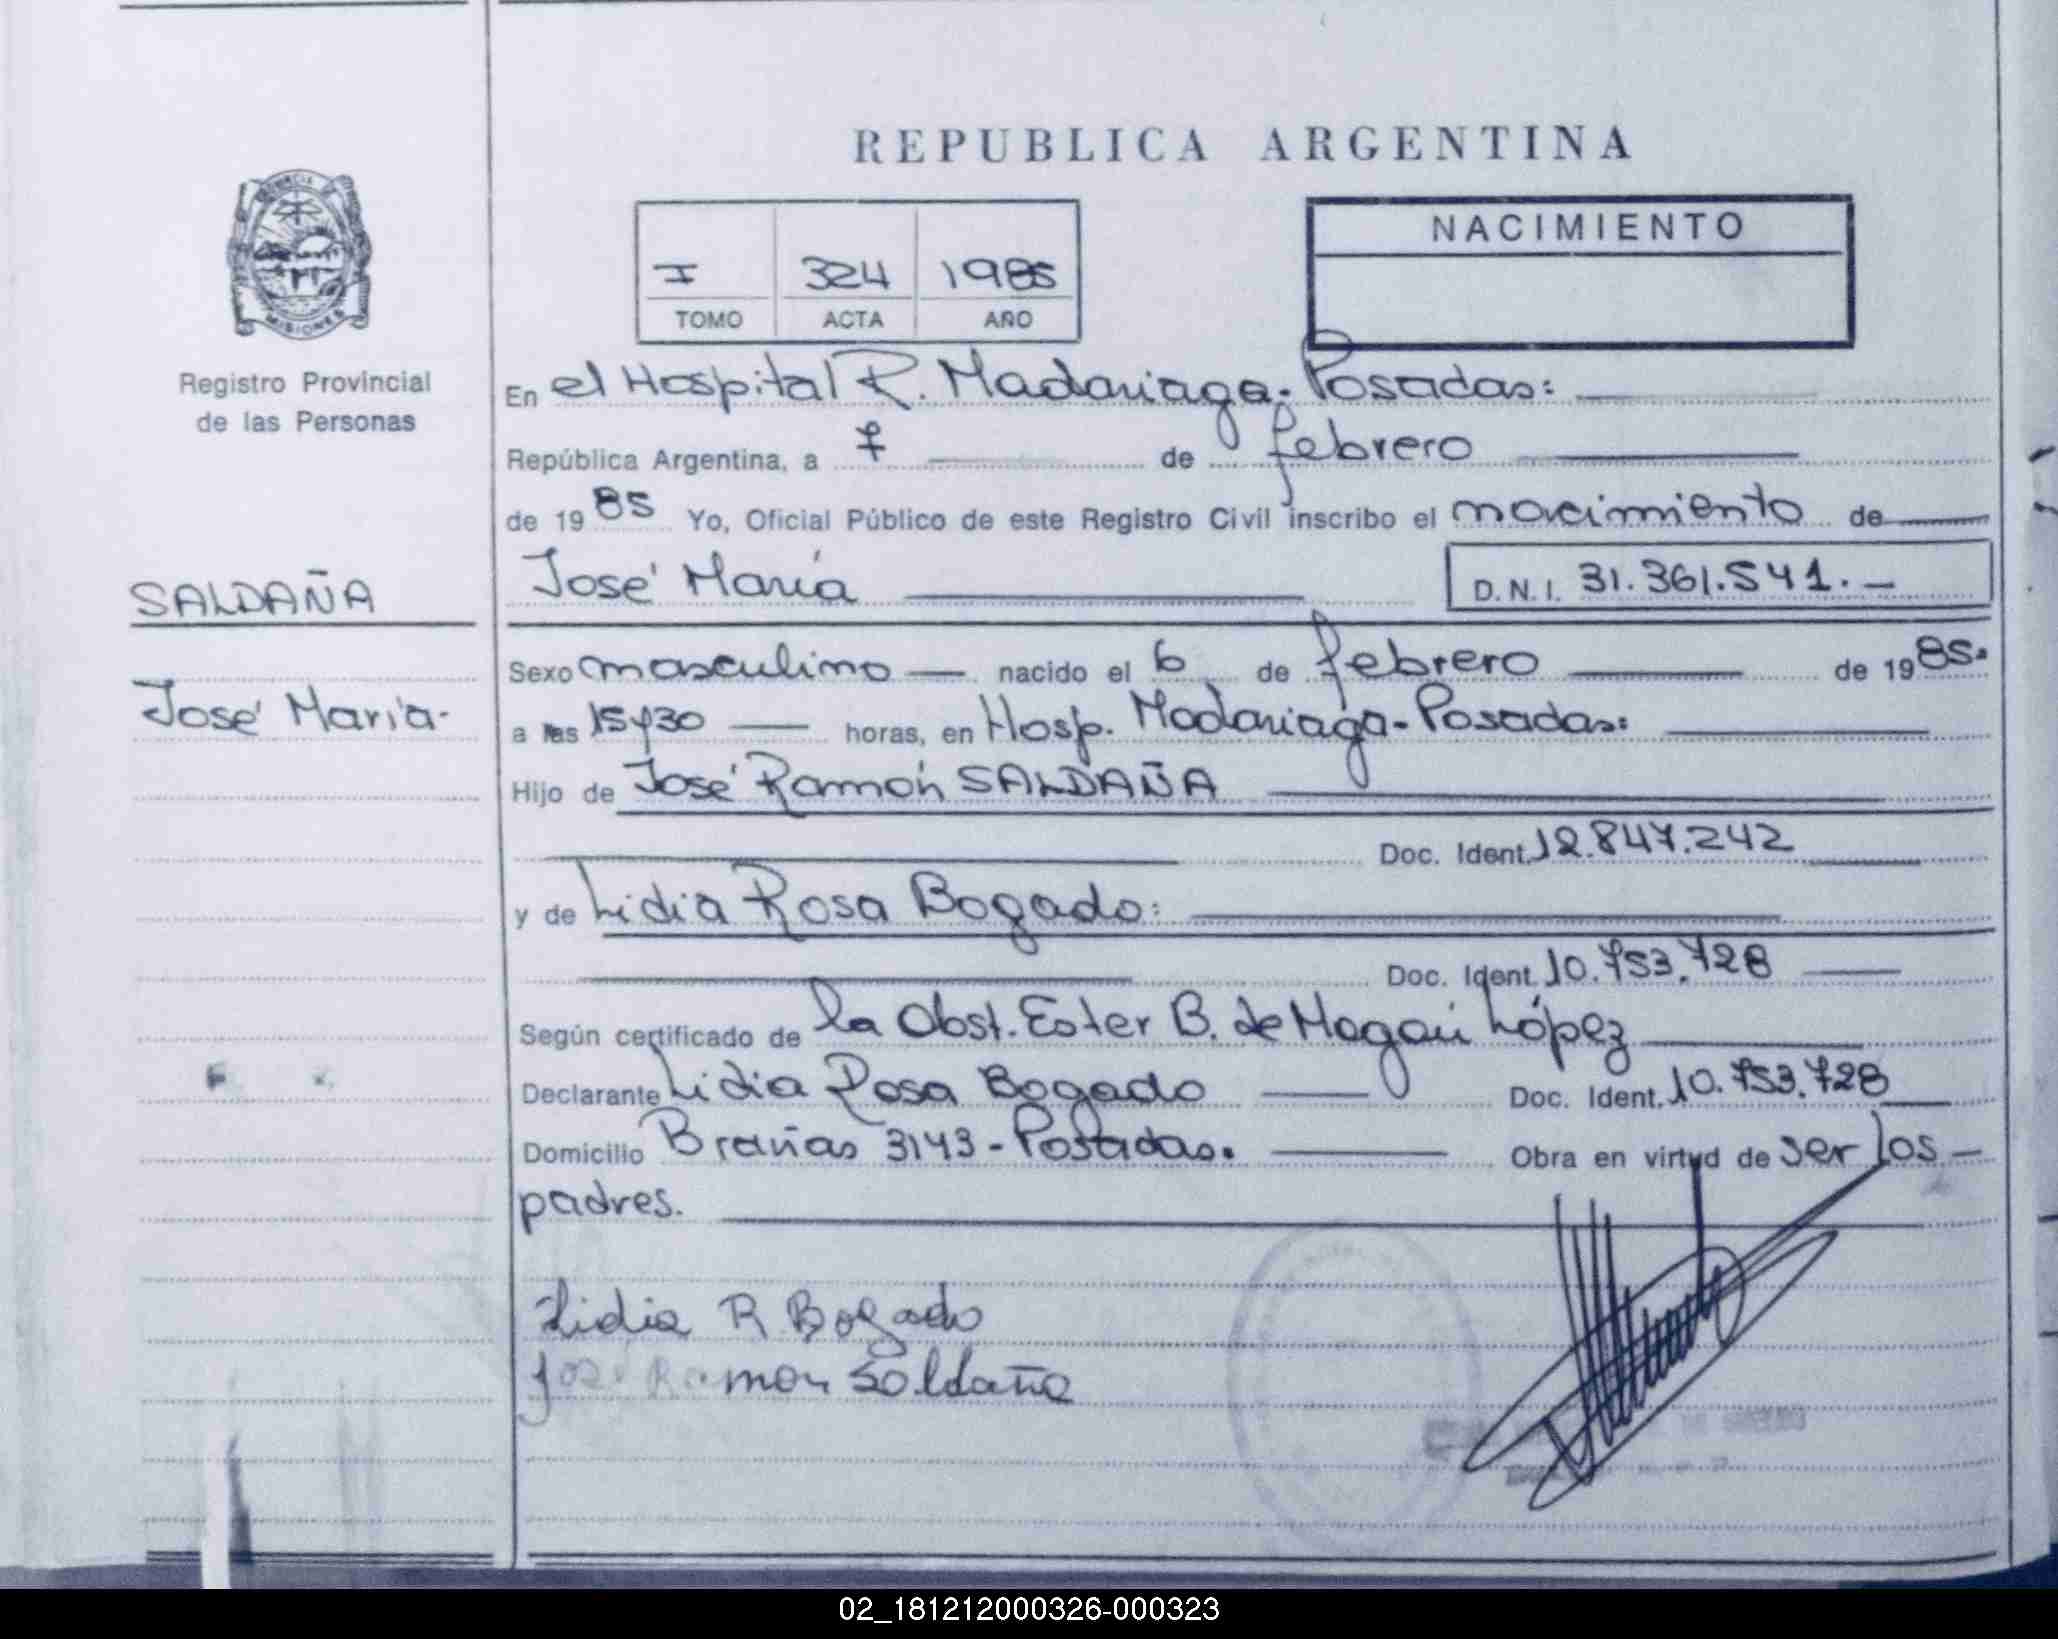 REPUBLICA ARGENTINA
PROVINCIA
MISIONES
Registro Provincial
de las Personas
I 324 1985
TOMO ACTA AÑO
NACIMIENTO
En el Hospital R. Madariaga. Posadas:
República Argentina, a 7 de febrero
de 1985 Yo, Oficial Público de este Registro Civil inscribo el nacimiento de
SALDAÑA
José María
José María D.N.I. 31.361.541.-
Sexo masculino nacido el 6 de febrero de 1985.
a las 15y30 horas, en Hosp. Madariaga-Posadas:
Hijo de José Ramón SALDAÑA
Doc. Ident. 12.847.242
y de Lidia Rosa Bogado:
Doc. Ident. 10.753.728
Según certificado de la Obst. Ester B. de López
Declarante Lidia Rosa Bogado Doc. Ident. 10.753.728
Domicilio Brañas 3143-Posadas. Obra en virtud de ser los
padres.
Lidia R Bogado
José Ramon Saldaña
02_181212000326-000323